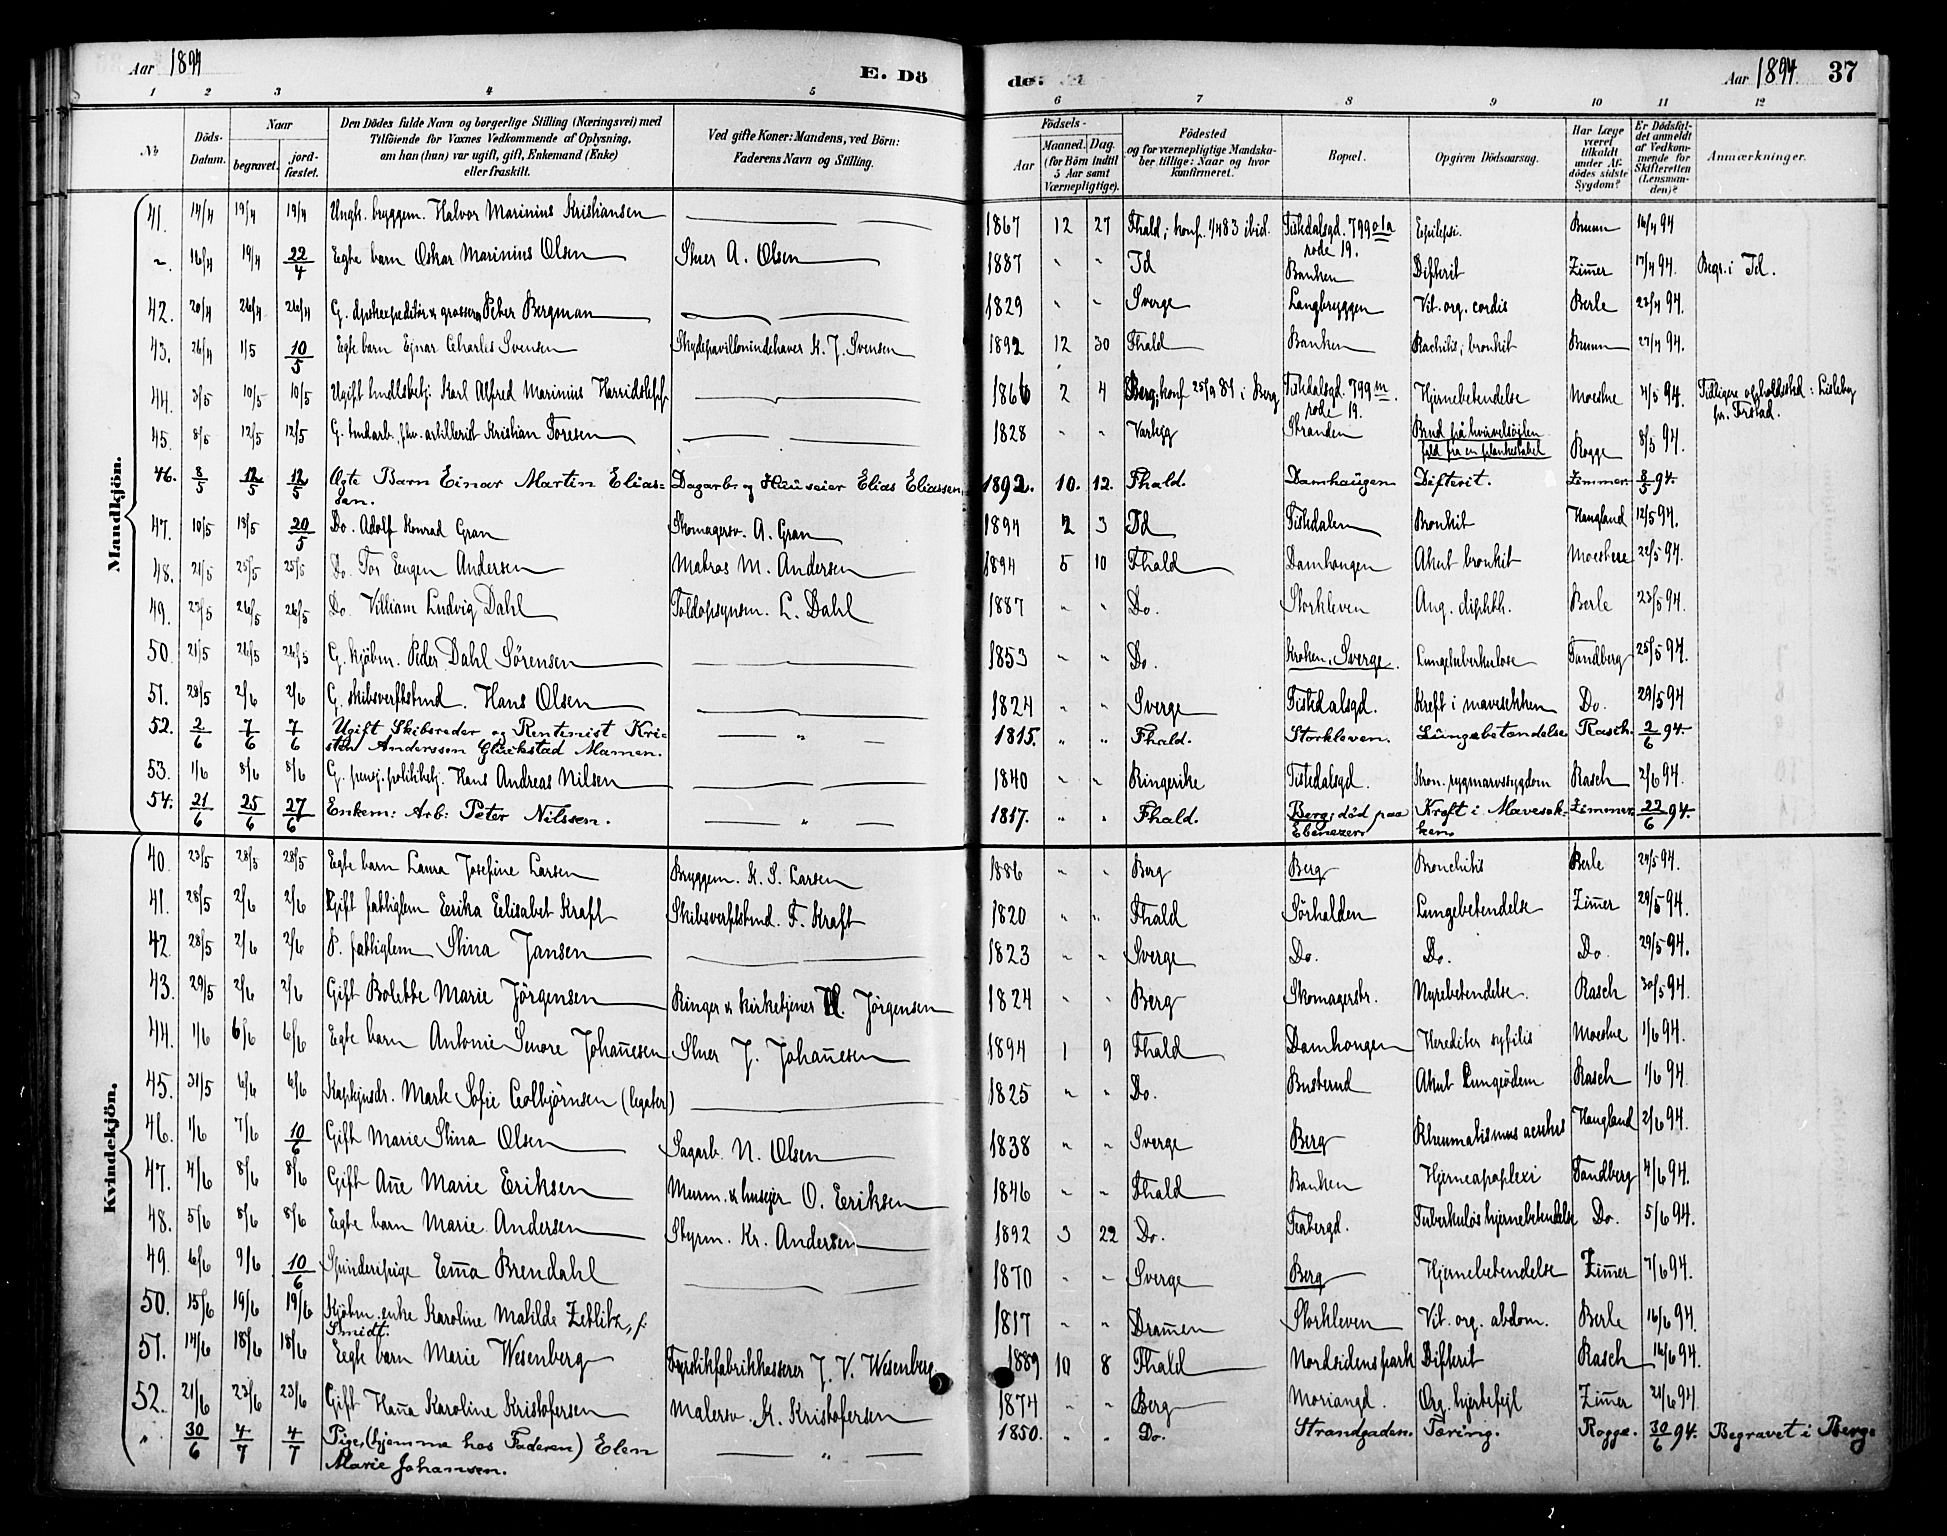 Aar 1894 E. Dö
de: Aar 1894. 37
1 2 3 4 5 6 7 8 9 10 11 12
No Döds-Datum. Naar begravet. jord-fæstet. Den Dödes fulde Navn og borgerlige Stilling (Næringsvei) med Tilföiende for Voxnes Vedkommende af Oplysning, om han (hun) var ugift, gift, Enkemand (Enke) eller fraskilt. Ved gifte Koner: Mandens, ved Börn: Faderens Navn og Stilling. Födsels- Aar Maaned. Dag. (for Börn indtil 5 Aar samt Værnepligtige). Födested og for værnepligtige Mandskaber tillige: Naar og hvor konfirmeret. Bopæl. Opgiven Dödsaarsag. Har Læge været tilkaldt under Afdödes sidste Sygdom? Er Dödsfaldet anmeldt af Vedkommende for Skifteretten (Lensmanden)? Anmærkninger.
Mandkjön.
41. 14/4 19/4 19/4 Ungk. bryggem. Halvor Marinius Kristiansen 1867 12 27 Fhald; konf. 1/4 83 ibid. Tistedalsgd. 799 o1a rode 19. Epilepsi. Bruun 16/4 94
". 16/4 19/4 22/4 Egte barn Oskar Marinius Olsen Stuer A. Olsen 1887 " " Id Banken Difterit Zimer 17/4 94. Begr. i Id.
42. 20/4 26/4 26/4 G. Peter Bergman 1829 " " Sverge Langbryggen Vit. org. cordis Berle 23/4 94.
43. 26/4 1/5 10/5 Egte barn Ejnar Charles Svensen Skydepavillonindehaver K. J. Svensen 1892 12 30 Fhald Banken Rachitis; bronkit Bruun 27/4 94.
44. 3/5 10/5 10/5 Ugift hndlsbetj. Karl Alfred Marinius 1866 2 4 Berg; konf 25/9 81 i Berg Tistedalsgd. 799 m. rode 19. Hjernebetendelse Moestue 4/5 94. Tidligere opholdssted: Lisleby pr. Frstad.
45. 8/5 12/5 12/5 G. artillerist Kristian Toresen 1828 " " Varteig Stranden Brud på hvirvelsöjlen fald fra en plankestabel Rogge 8/5 94.
46. 8/5 12/5 12/5 Ægte Barn Einar Martin Elias-sen. Dagarb. og Huuseier Elias Eliassen. 1892. 10. 12. Fhald. Damhaugen Difterit. Zimmer. 8/5 94.
47. 10/5 13/5 20/5 Do. Adolf Konrad Gran Skomagersv. A. Gran 1894 2 3 Id Tistedalen Bronkit Haugland 12/5 94.
48. 21/5 25/5 25/5 Do. Tor Eugen Andersen Matros M. Andersen 1894 5 10 Fhald Damhougen Akut bronkit Moestue 22/5 94.
49. 23/5 26/5 26/5 Do. Villiam Ludvig Dahl Toldopsynsm. L. Dahl 1887 " " Do. Storkleven Ang. diphth. Berle 23/5 94.
50. 21/5 26/5 26/5 G. kjöbm. Peder Dahl Sörensen 1853 " " Do. Kroken, Sverge. Lungetuberkulose Tandberg 25/5 94.
51. 28/5 2/6 2/6 G. skibsverftstmd. Hans Olsen 1824 " " Sverge Tistedalsgd. Kreft i mavesekken Do. 29/5 94
52. 2/6 7/6 7/6 Ugift Skibsreder og Rentenist Kri-sten Anderssen Glückstad Mamen. " 1815. " " Fhald. Storkleven. Lungebetændelse Rasch. 2/6 94.
53. 1/6 8/6 8/6 G. pensj. politibetj. Hans Andreas Nilsen 1840 " " Ringerike Tistedalsgd. Kron. rygmarvssygdom Rasch 2/6 94.
54. 21/6 25/6 27/6 Enkem: Arb: Peter Nilssen. " 1817. " " Fhald. Berg; död paa Ebenezer. Kræft i Mavesæk-ken. Zimmer. 22/6 94.
Kvindekjön.
40. 23/5 28/5 28/5 Egte barn Laura Josefine Larsen Bryggem. K. S. Larsen 1886 " " Berg Berg Bronchitis Berle 24/5 94.
41. 28/5 2/6 2/6 Gift fattiglem Erika Elisabet Kraft Skibsverftstmd. F. Kraft 1820 " " Fhald Sörhalden Lungebetendelse Zimer 29/5 94.
42. 28/5 2/6 2/6 P. fattiglem Stina Jansen 1823 " " Sverge Do. Do. Do. 29/5 94.
43. 29/5 2/6 2/6 Gift Bolette Marie Jörgensen Ringer & kirketjener H. Jörgensen 1824 " " Berg Skomagerstr. Nyrebetendelse. Rasch 30/5 94.
44. 1/6 6/6 6/6 Egte barn Antonie Senore Johañesen Stuer J. Johañesen 1894 1 9 Fhald Damhougen Hereditær syfilis Moestue 1/6 94.
45. 31/5 6/6 6/6 Kaptejnsdr. Marte Sofie Colbjörnsen (legater) 1825 " " Do. Busterud Akut Lungeödem Rasch 1/6 94.
46. 1/6 7/6 10/6 Gift Marie Stina Olsen Sagarb. N. Olsen 1838 " " Sverge Berg Rheumatismus Haugland 2/6 94.
47. 4/6 8/6 8/6 Gift Añe Marie Eriksen Murm. & husejer O. Eriksen 1846 " " Fhald Banken Hjerneapoplexi Tandberg 4/6 94.
48. 5/6 8/6 8/6 Egte barn Marie Andersen Styrm. Kr. Andersen 1892 3 22 Do. Tuberkulös hjernebetendelse Do. 5/6 94.
49. 6/6 9/6 10/6 Spinderipige Ema Brendahl 1870 " " Sverge Berg Hjernebetendelse Zimer 7/6 94.
50. 15/6 19/6 19/6 Kjöbm. enke Karoline Matilde Zetlitz, f. Smidt. 1817 " " Dramen Storkleven Vit. org. abdom. Berle 16/6 94.
51. 14/6 18/6 18/6 Egte barn Marie Wesenberg Fyrstikfabrikkasserer J. V. Wesenberg 1889 10 8 Fhald Nordsidens park Difterit Rasch 16/6 94.
52. 21/6 23/6 23/6 Gift Haña Karoline Kristofersen Malersv. K. Kristofersen 1874 " " Berg Moriangd. Org. hjertefejl Zimer 21/6 94.
" 30/6 4/7 4/7 Pige, (hjemme hos Faderen) Elen Marie Johansen. " 1850. " " Do. Strandgaden. Tæring. Rogge. 30/6 94. Begravet i Berg.